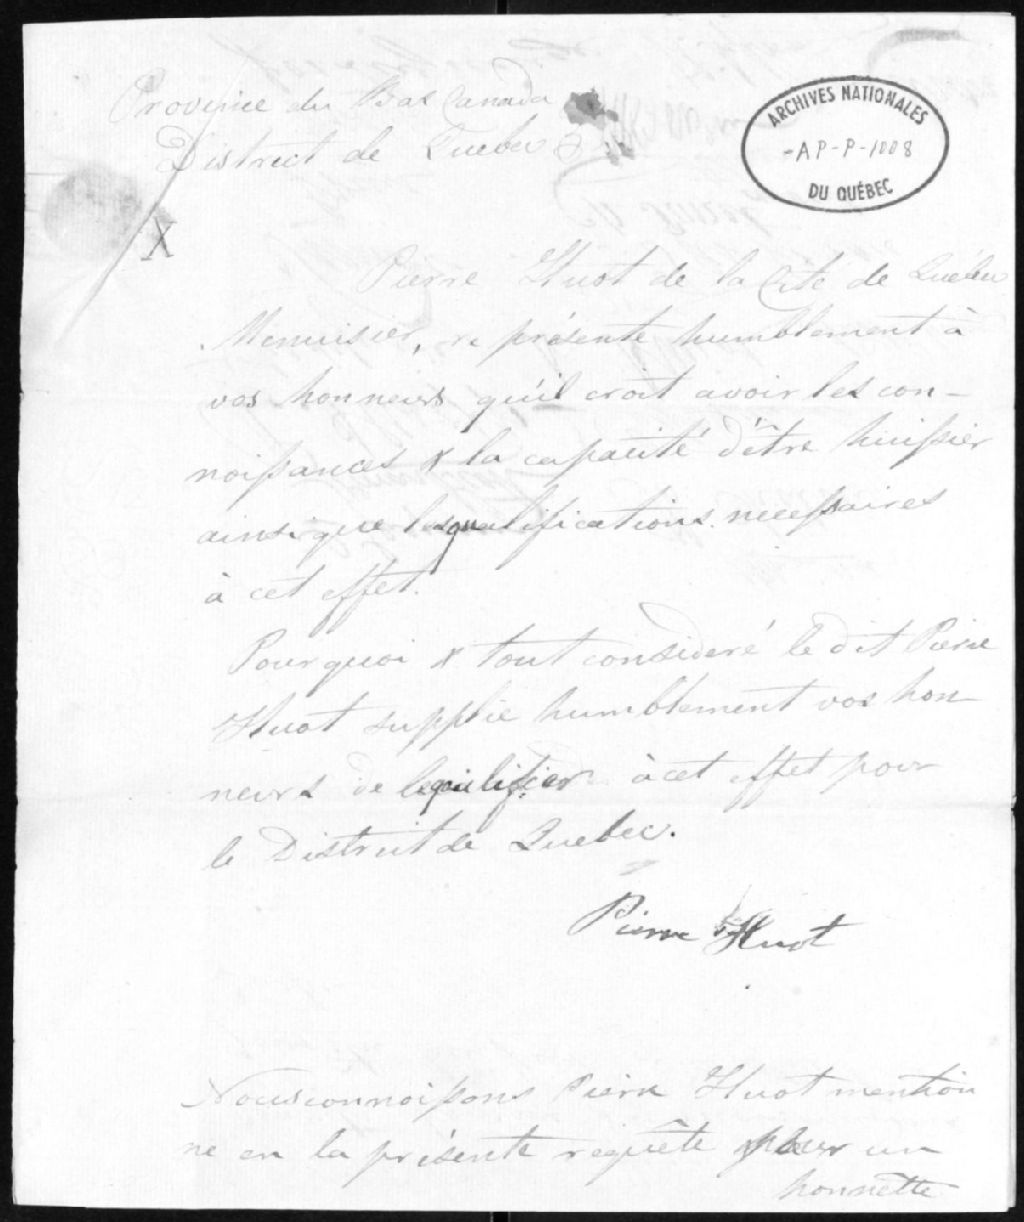 Province du Bas Canada
District de Quebec
ARCHIVES NATIONALES
-AP-P-1008
DU QUÉBEC
X
Pierre Huot de la Cité de Québec
Menuisier, représente humblement à
vos honneurs qu'il croit avoir les con-
noissances & la capacité d'être huissier
ainsi que les qualifications necessaires
à cet effet.
Pourquoi & tout consideré le dit Pierre
Huot supplie humblement vos hon-
neurs de le qualifier à cet effet pour
le District de Quebec.
Pierre Huot
Nous connoissons Pierre Huot mention
né en la présente requête pour un
honnette